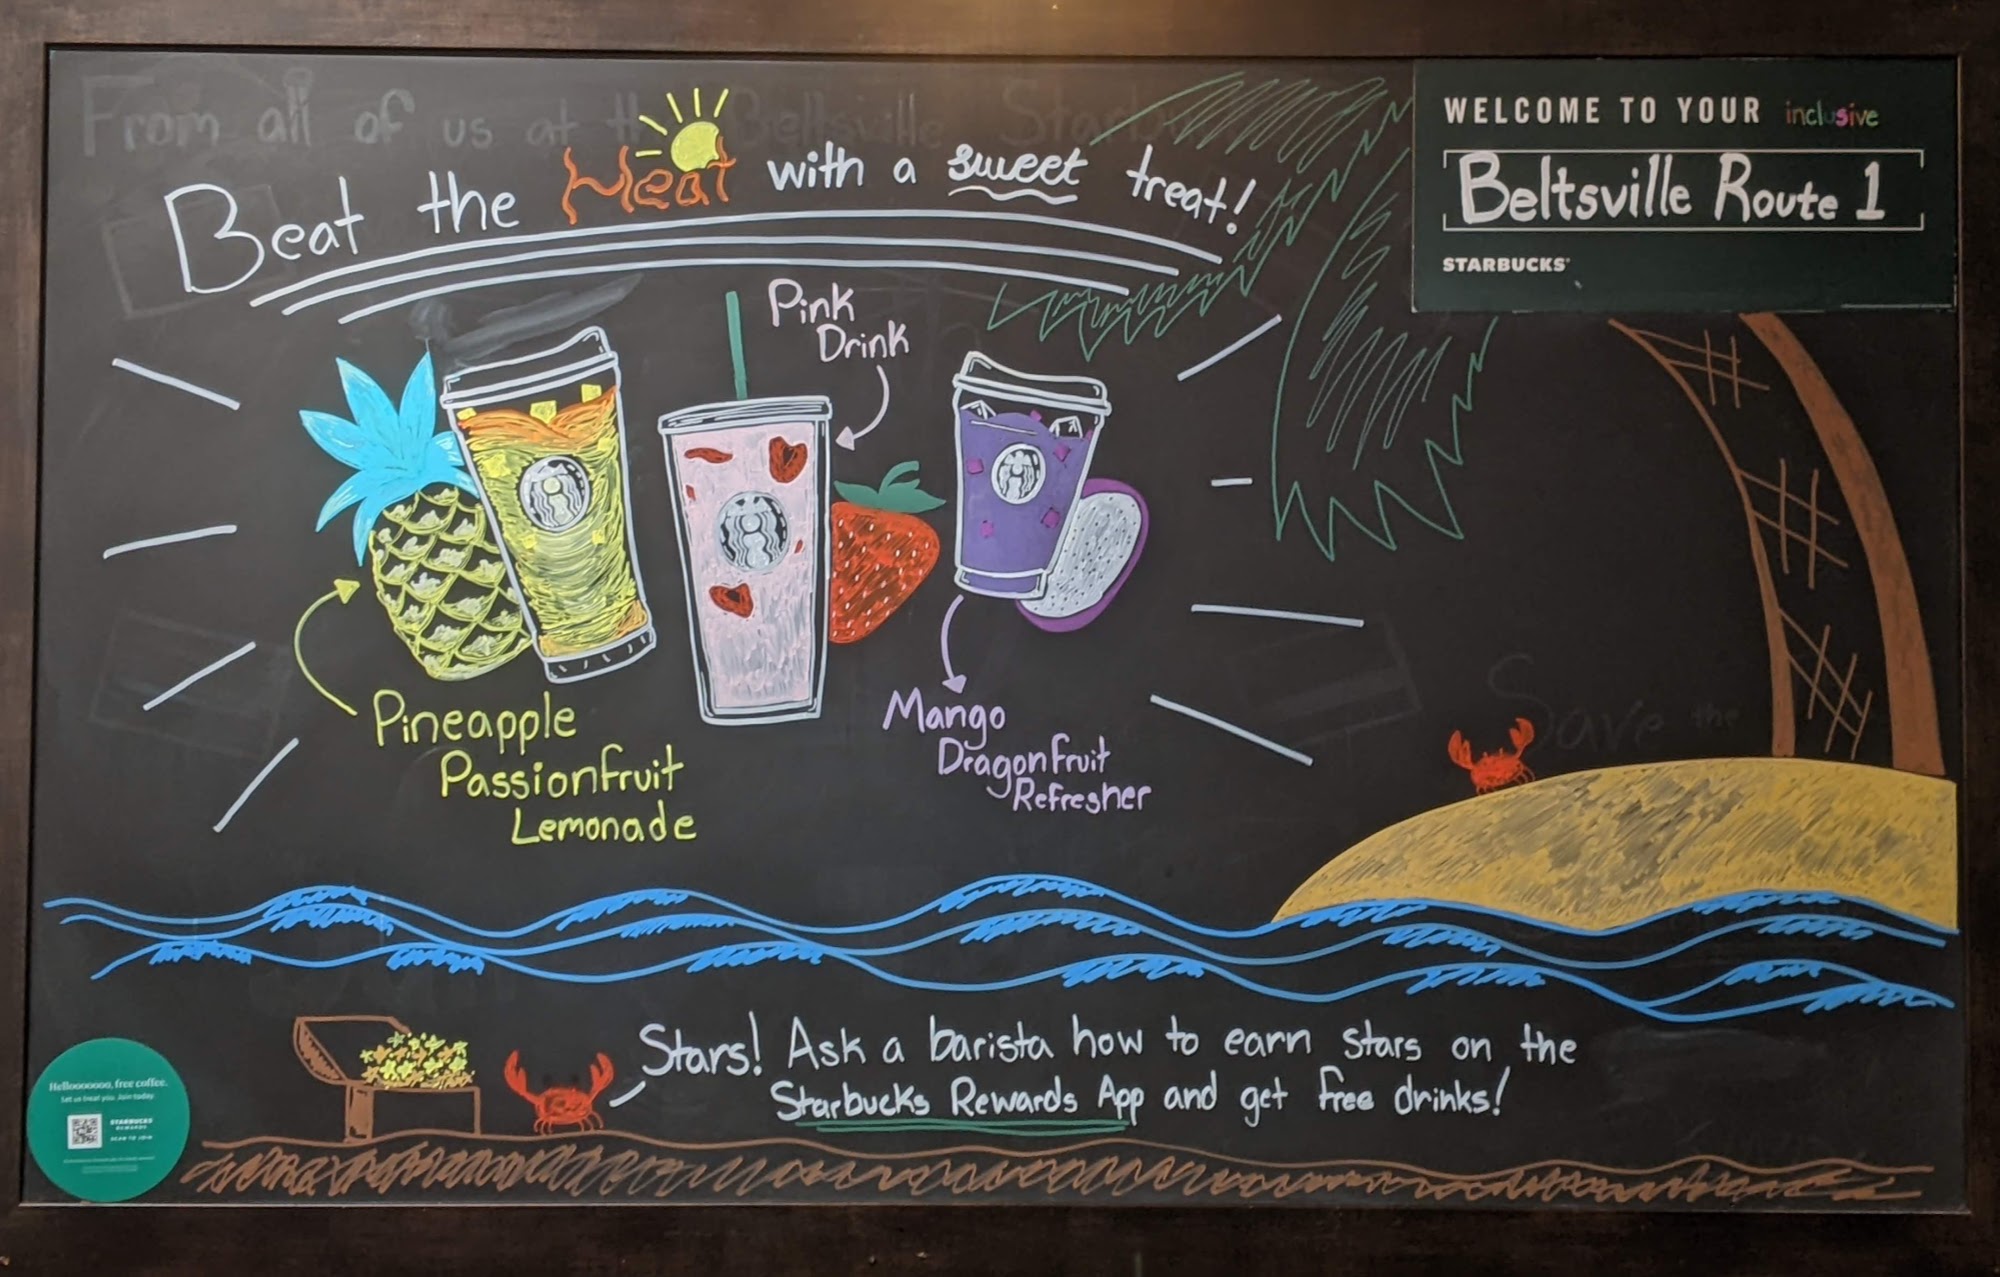 From all of us at the Beltsville
Beat the Heat with a sweet treat!
WELCOME TO YOUR inclusive
Beltsville Route 1
STARBUCKS
Pink
Drink
Pineapple
Passionfruit
Lemonade
Mango
Dragonfruit
Refresher
Save the
Stars! Ask a barista how to earn stars on the
Starbucks Rewards App and get free drinks!
Hellooooooo, free coffee.
Let us treat you. Join today.
STARBUCKS
REWARDS
SCAN TO JOIN